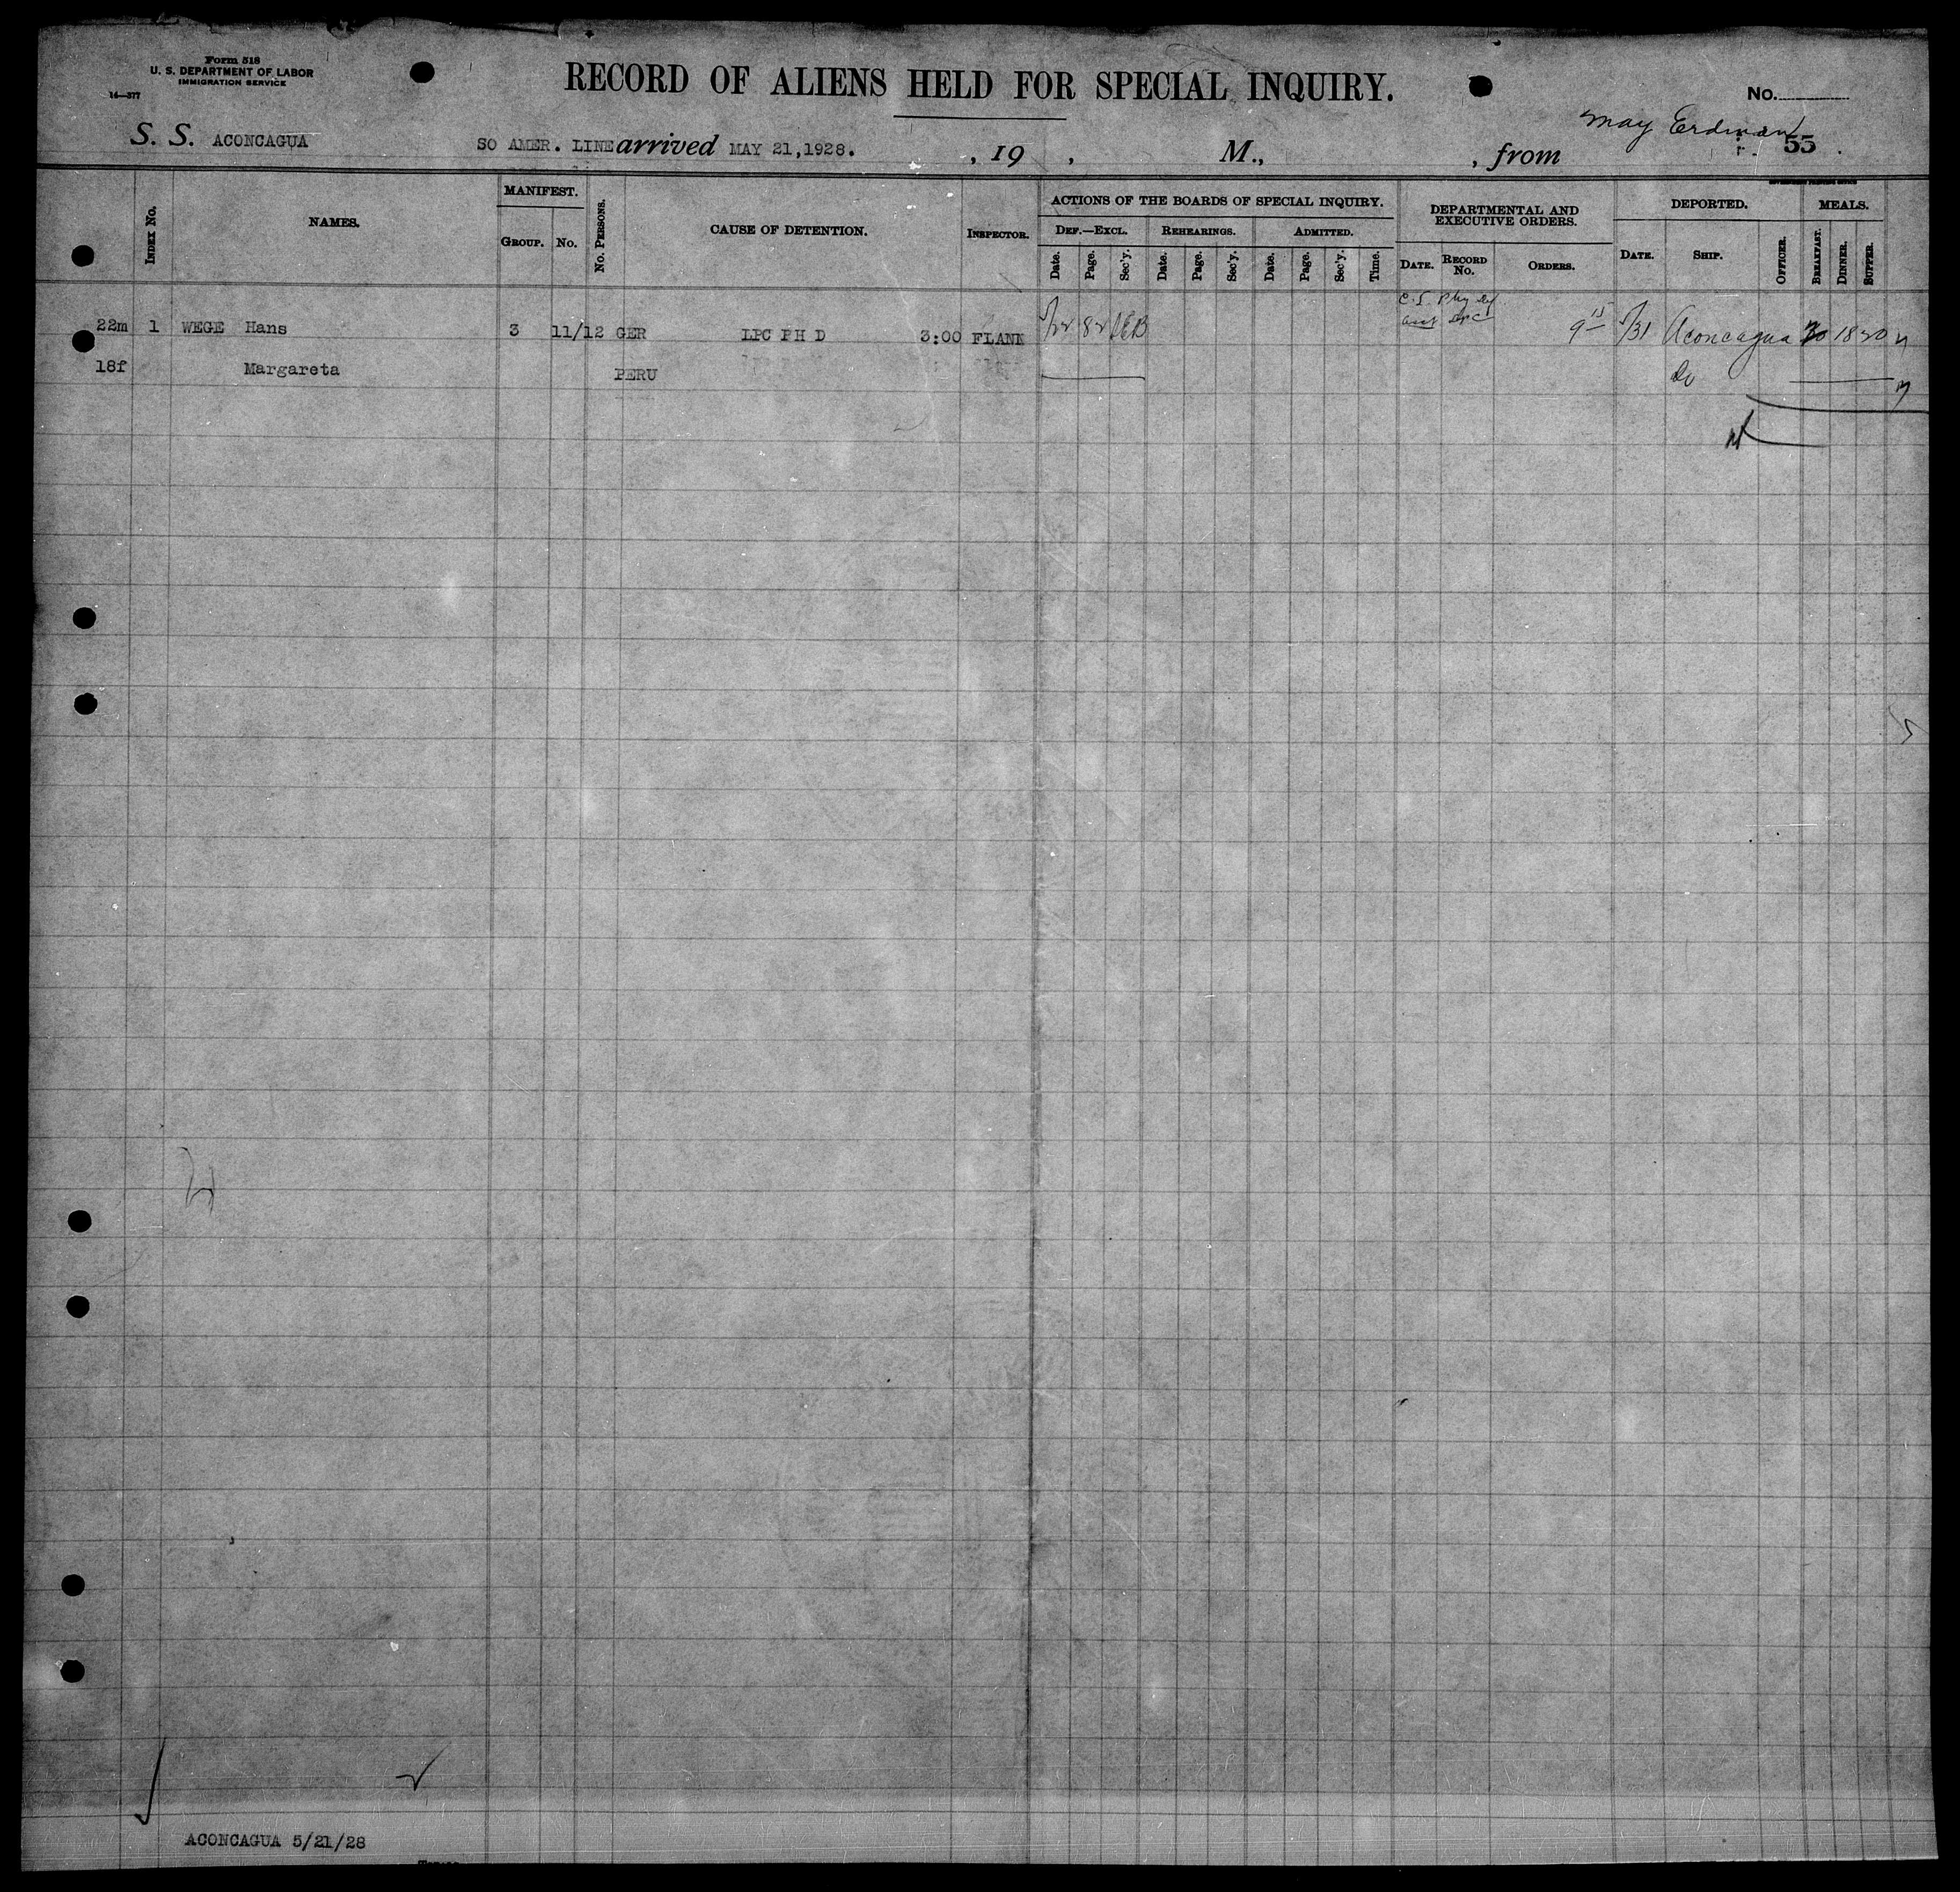 Form 518
U. S. DEPARTMENT OF LABOR
IMMIGRATION SERVICE
14—377
RECORD OF ALIENS HELD FOR SPECIAL INQUIRY.
No.
May Erdman
S. S. ACONCAGUA SO AMER. LINE arrived MAY 21,1928. , 19 , M., , from 55
INDEX NO.
NAMES.
MANIFEST.
GROUP. NO.
NO. PERSONS.
CAUSE OF DETENTION.
INSPECTOR.
ACTIONS OF THE BOARDS OF SPECIAL INQUIRY.
DEF.—EXCL. REHEARINGS. ADMITTED.
Date. Page. Sec'y. Date. Page. Sec'y. Date. Page. Sec'y. Time.
DEPARTMENTAL AND
EXECUTIVE ORDERS.
DATE. RECORD NO. ORDERS.
DEPORTED.
DATE. SHIP. OFFICER.
MEALS.
BREAKFAST. DINNER. SUPPER.
22m 1 WEGE Hans 3 11/12 GER LPC PH D 3:00 FLANN 5/22 82 5/31 Aconcagua 18 20
18f Margareta PERU Do
ACONCAGUA 5/21/28